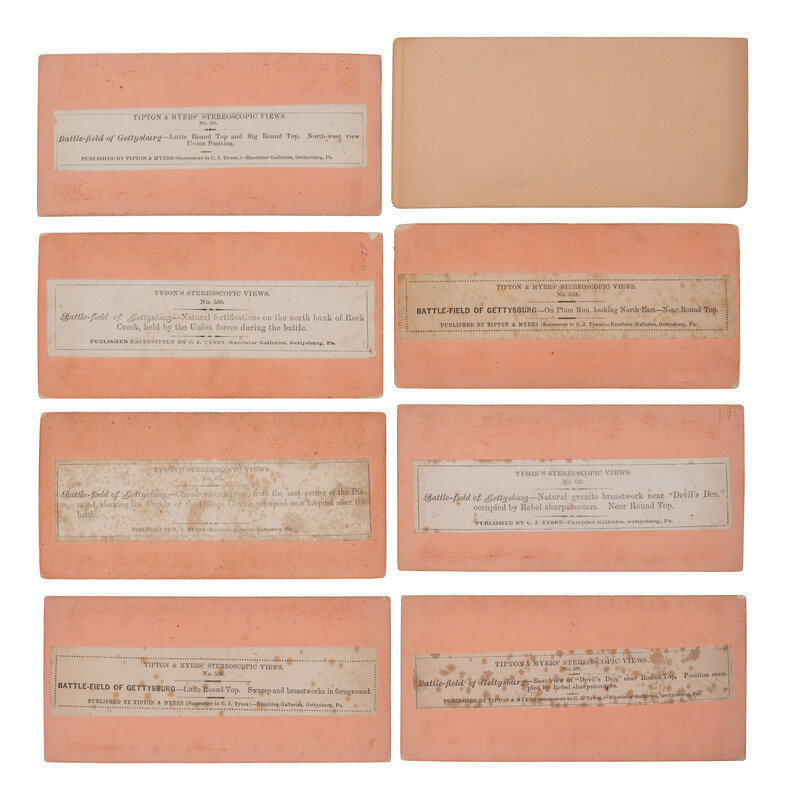 TIPTON & MYERS' STEREOSCOPIC VIEWS.
Battle-field of Gettysburg—Little Round Top and Big Round Top. North-west view.
Union Position,
PUBLISHED BY TIPTON & MYERS (Successors to C. J. Tyson,)—Excelsior Galleries, Gettysburg, Pa.
TYSON'S STEREOSCOPIC VIEWS.
No. 530.
Battle-field of Gettysburg—Natural fortifications on the north bank of Rock
Creek, held by the Union forces during the battle.
PUBLISHED EXCLUSIVELY BY C. J. TYSON—Excelsior Galleries, Gettysburg, Pa.
TIPTON & MYERS' STEREOSCOPIC VIEWS.
No. 583.
BATTLE-FIELD OF GETTYSBURG—On Plum Run, looking North-East—Near Round Top.
PUBLISHED BY TIPTON & MYERS (Successors to C. J. Tyson)—Excelsior Galleries, Gettysburg, Pa.
TYSON'S STEREOSCOPIC VIEWS.
Battle-field of Gettysburg—Chambersburg street, from the east corner of the Dia-
mond, showing the Cupola of the College Church, occupied as a hospital after the
battle.
PUBLISHED BY C. J. TYSON—Excelsior Galleries, Gettysburg, Pa.
TYSON'S STEREOSCOPIC VIEWS.
Battle-field of Gettysburg—Natural granite breastwork near "Devil's Den,"
occupied by Rebel sharpshooters. Near Round Top.
PUBLISHED BY C. J. TYSON—Excelsior Galleries, Gettysburg, Pa.
TIPTON & MYERS' STEREOSCOPIC VIEWS.
No. 556.
BATTLE-FIELD OF GETTYSBURG—Little Round Top. Swamp and breastworks in foreground.
PUBLISHED BY TIPTON & MYERS (Successors to C. J. Tyson)—Excelsior Galleries, Gettysburg, Pa.
TIPTON & MYERS' STEREOSCOPIC VIEWS.
Battle-field of Gettysburg—East view of "Devil's Den" near Round Top. Position occu-
pied by Rebel sharpshooters.
PUBLISHED BY TIPTON & MYERS (Successors to C. J. Tyson)—Excelsior Galleries, Gettysburg, Pa.